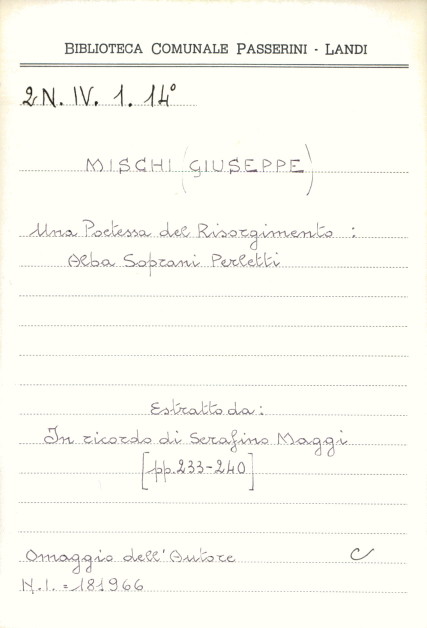 BIBLIOTECA COMUNALE PASSERINI - LANDI
2N. IV. 1. 14°
MISCHI (GIUSEPPE)
Una Poetessa del Risorgimento :
Alba Soprani Perletti
Estratto da :
In ricordo di Serafino Maggi
[pp. 233-240]
Omaggio dell'Autore C
N.I. = 181966